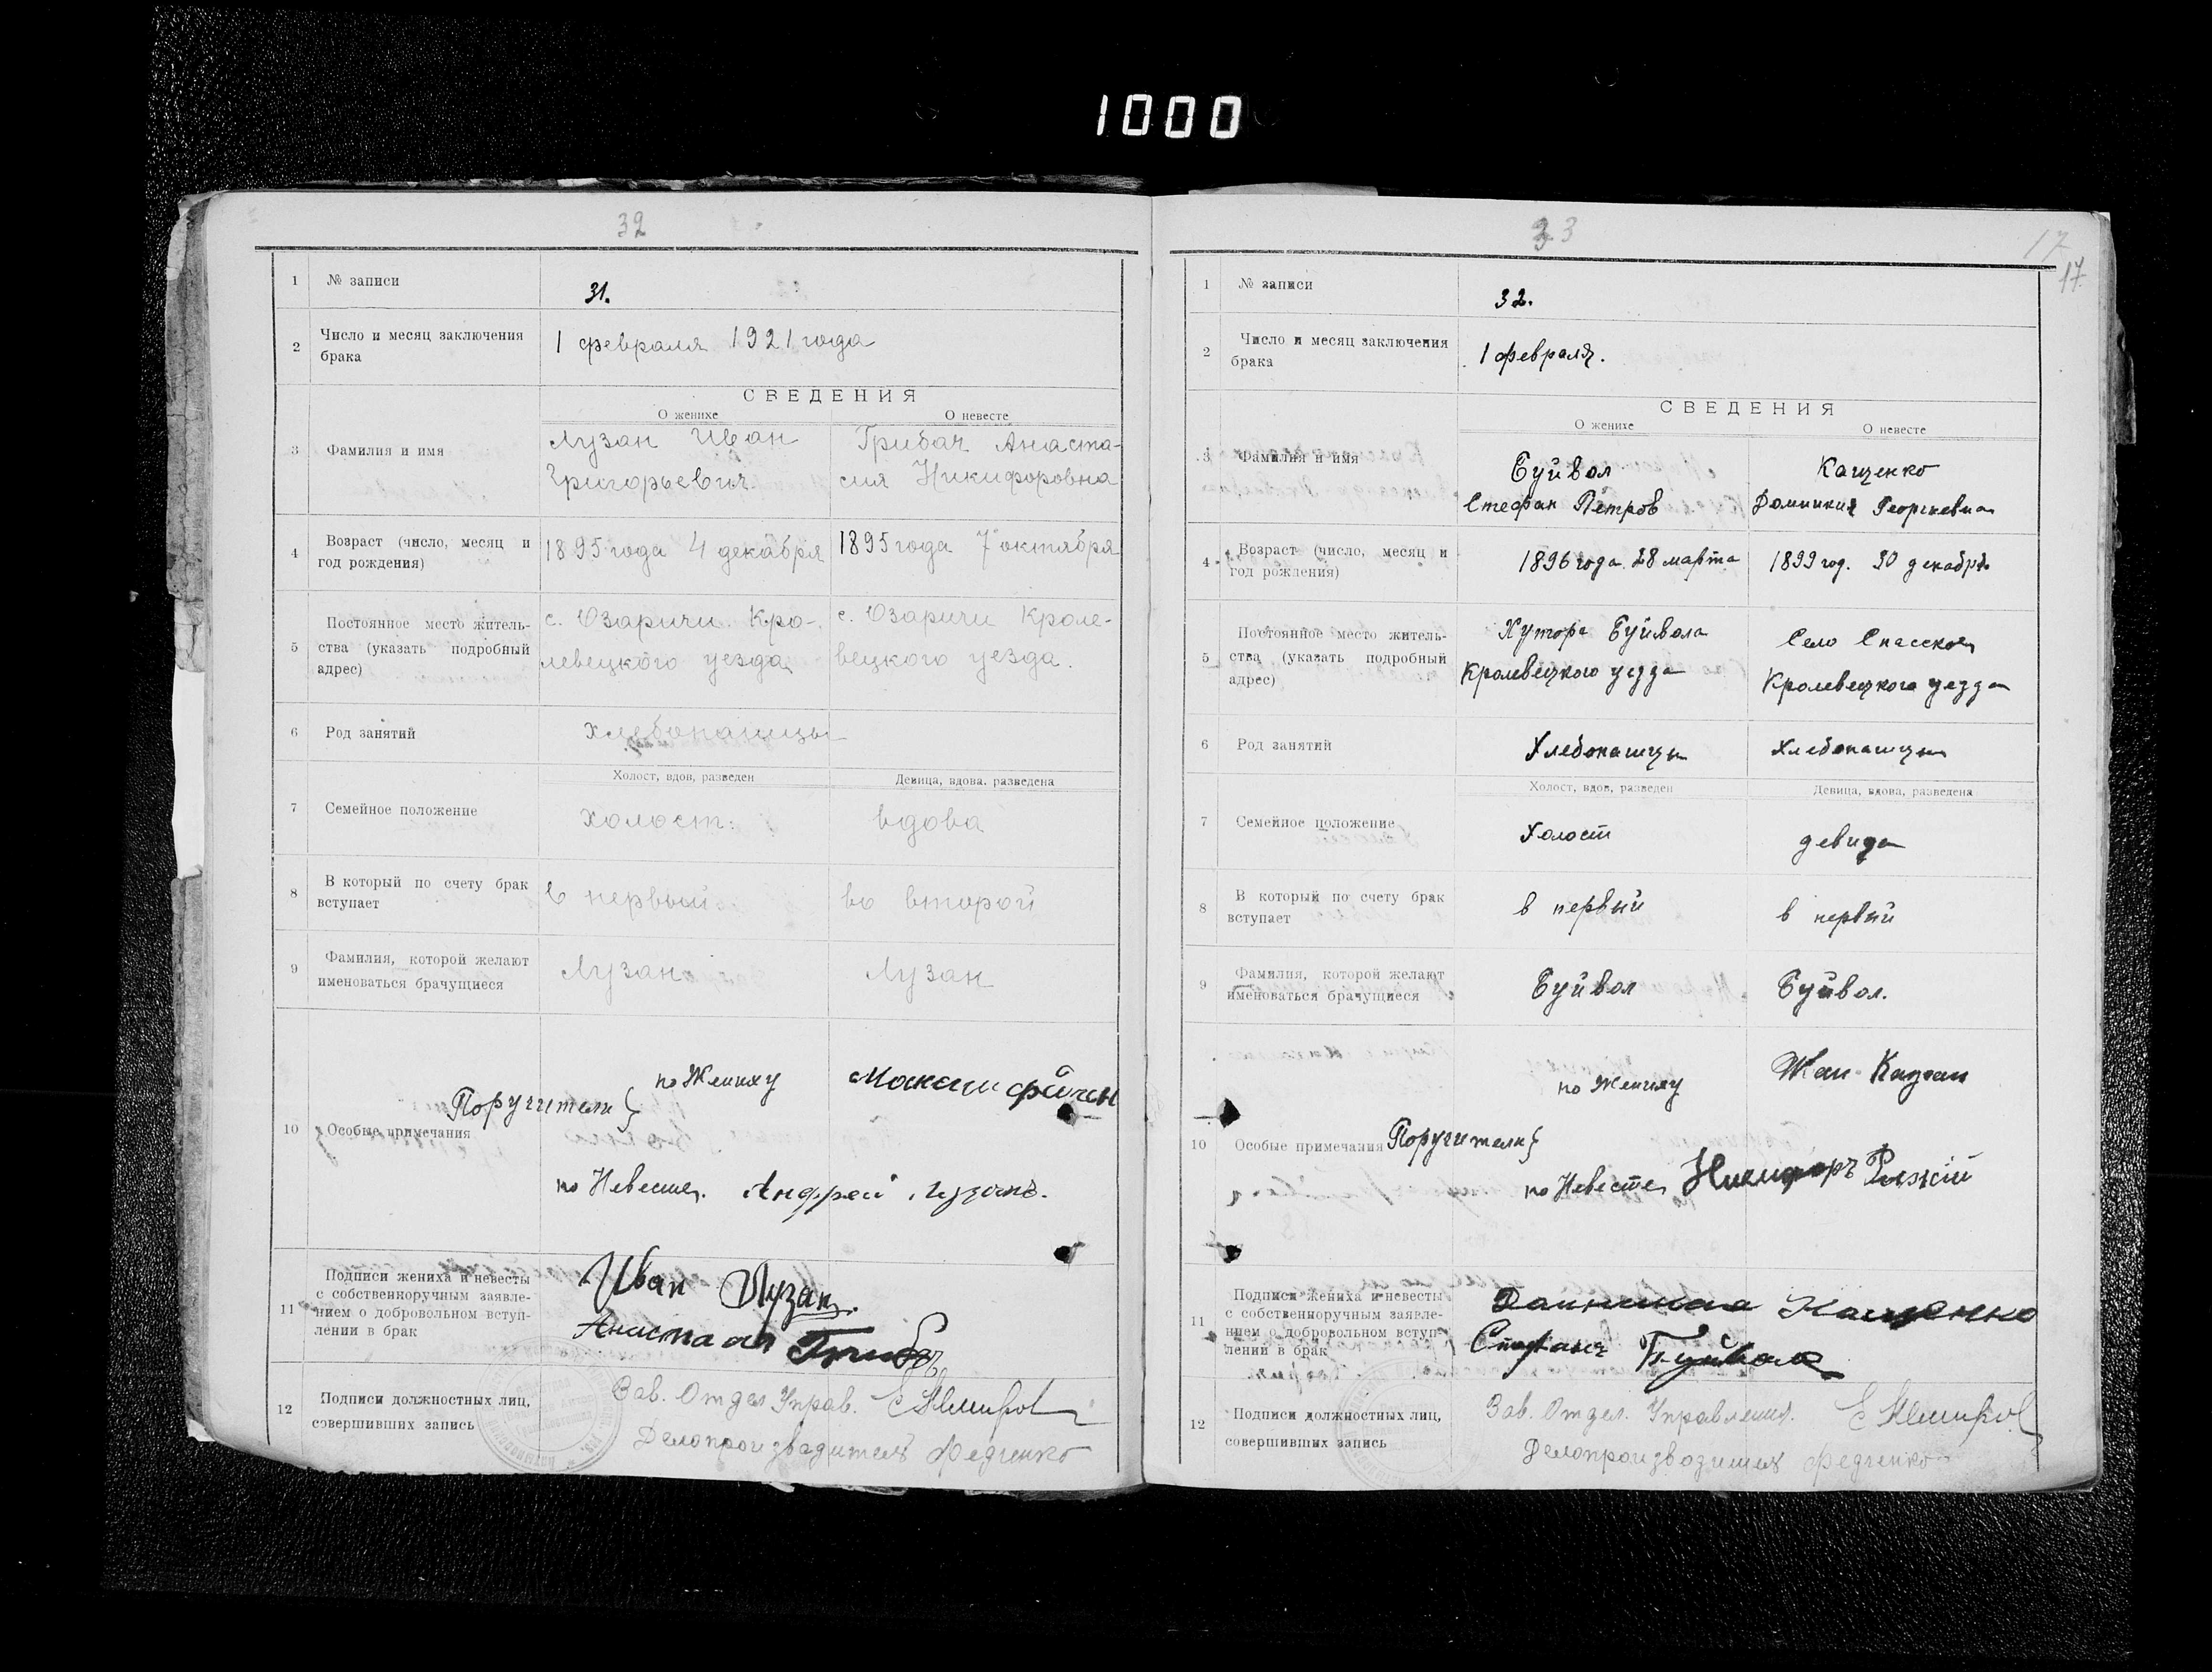 1000
32
1 № записи 31.
2 Число и месяц заключения брака 1 февраля 1921 года
СВЕДЕНИЯ
О женихе О невесте
3 Фамилия и имя Лузан Иван Грибач Анаста-
Григорьевич сия Никифоровна
4 Возраст (число, месяц и год рождения) 1895 года 4 декабря 1895 года 7 октября
5 Постоянное место житель-
ства (указать подробный
адрес)
с. Озаричи Кро- с. Озаричи Кроле-
левецкого уезда вецкого уезда.
6 Род занятий хлебопашцы
Холост, вдов, разведен Девица, вдова, разведена
7 Семейное положение холост. вдова
8 В который по счету брак
вступает
в первый во второй
9 Фамилия, которой желают
именоваться брачущиеся
Лузан Лузан
10 Особые примечания
Поручители } по Жениху Максим
по Невесте. Андрей Лузанъ.
11 Подписи жениха и невесты
с собственноручным заявле-
нием о добровольном вступ-
лении в брак
Иван Лузан.
Анастасия
12 Подписи должностных лиц,
совершивших запись
Зав. Отдел Управ.
Делопроизводитель Федченко
33
17
17
1 № записи 32.
2 Число и месяц заключения
брака
1 февраля.
СВЕДЕНИЯ
О женихе О невесте
3 Фамилия и имя
Буйвол Кащенко
Стефан Петров Домникия Георгиевна
4 Возраст (число, месяц и
год рождения)
1896 года 28 марта 1899 год. 30 декабря
5 Постоянное место житель-
ства (указать подробный
адрес)
Хутора Буйвола Село Спасское
Кролевецкого уезда Кролевецкого уезда
6 Род занятий Хлебопашцы Хлебопашцы
Холост, вдов, разведен Девица, вдова, разведена
7 Семейное положение Холост девица
8 В который по счету брак
вступает
в первый в первый
9 Фамилия, которой желают
именоваться брачущиеся
Буйвол Буйвол.
10 Особые примечания Поручители }
по Жениху
по Невесте Никифоръ
11 Подписи жениха и невесты
с собственноручным заявле-
нием о добровольном вступ-
лении в брак
Кащенко
Стефанъ Буйвола
12 Подписи должностных лиц,
совершивших запись
Зав. Отдел. Управления.
Делопроизводитель Федченко